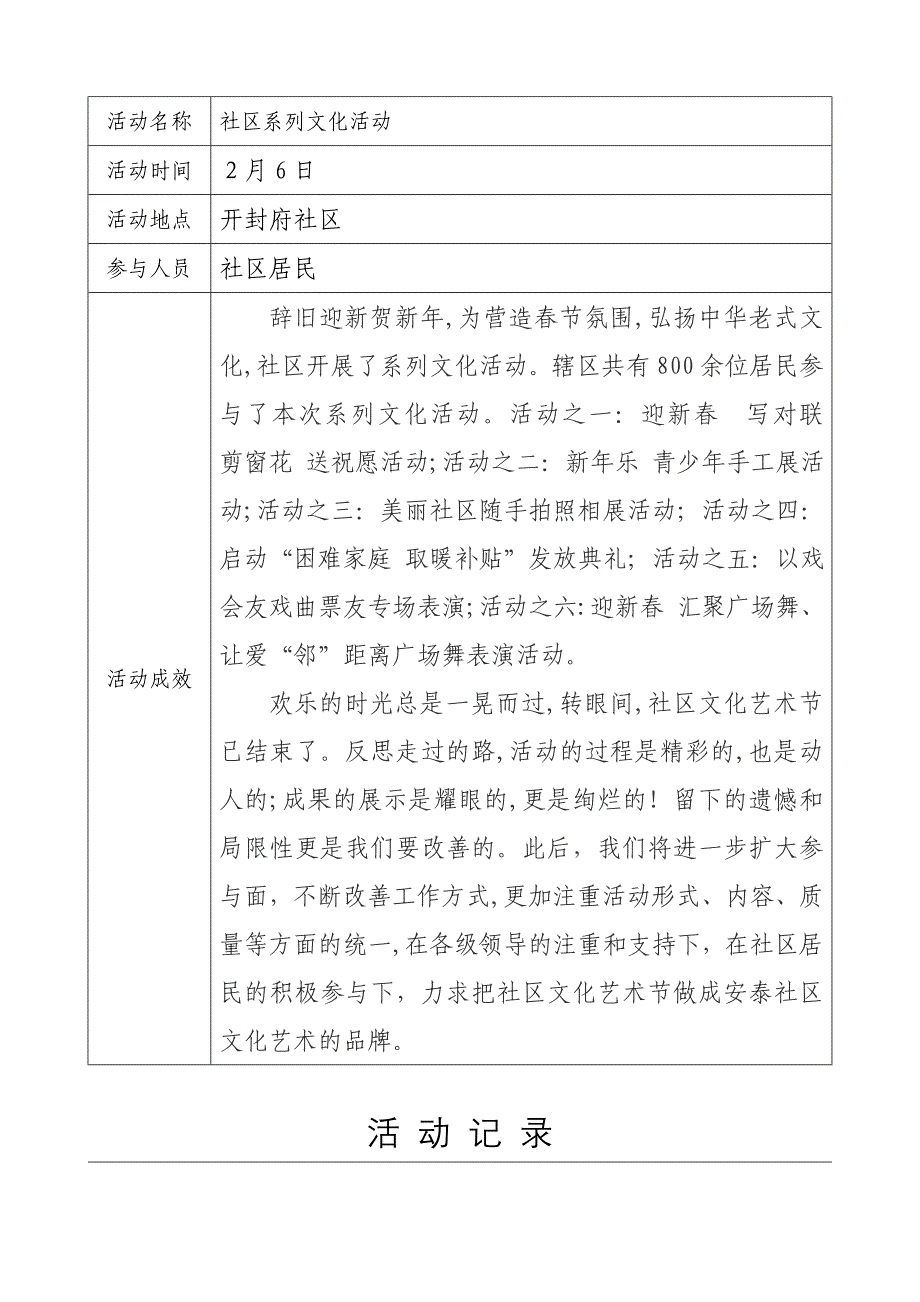 活动名称 社区系列文化活动
活动时间 2月6日
活动地点 开封府社区
参与人员 社区居民
活动成效
辞旧迎新贺新年,为营造春节氛围,弘扬中华老式文
化,社区开展了系列文化活动。辖区共有800余位居民参
与了本次系列文化活动。活动之一：迎新春 写对联
剪窗花 送祝愿活动;活动之二：新年乐 青少年手工展活
动;活动之三：美丽社区随手拍照相展活动；活动之四：
启动“困难家庭 取暖补贴”发放典礼；活动之五：以戏
会友戏曲票友专场表演;活动之六:迎新春 汇聚广场舞、
让爱“邻”距离广场舞表演活动。
欢乐的时光总是一晃而过,转眼间,社区文化艺术节
已结束了。反思走过的路,活动的过程是精彩的,也是动
人的;成果的展示是耀眼的,更是绚烂的！留下的遗憾和
局限性更是我们要改善的。此后，我们将进一步扩大参
与面，不断改善工作方式,更加注重活动形式、内容、质
量等方面的统一,在各级领导的注重和支持下，在社区居
民的积极参与下，力求把社区文化艺术节做成安泰社区
文化艺术的品牌。
活 动 记 录